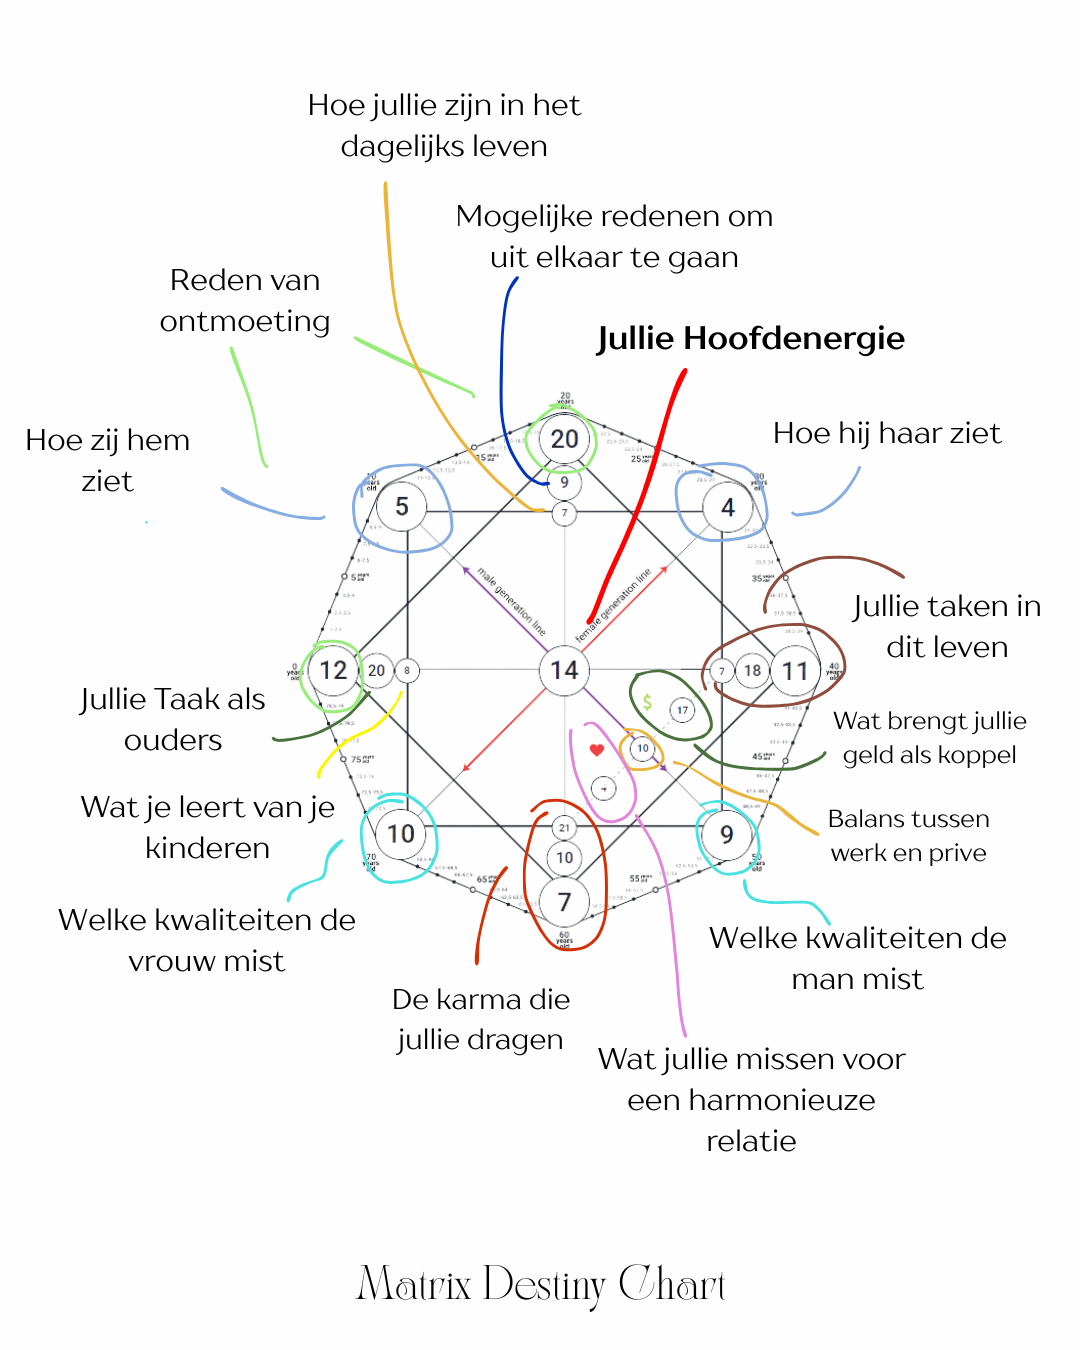 Hoe jullie zijn in het
dagelijks leven
Mogelijke redenen om
uit elkaar te gaan
Reden van
ontmoeting
Jullie Hoofdenergie
Hoe zij hem
ziet
Hoe hij haar ziet
20
years
old
20
9
7
15 years old
25 years old
10
years
old
5
30
years
old
4
5 years old
35 years old
male generation line
female generation line
Jullie taken in
dit leven
0
years
old
12
20
8
14
7
18
11
40
years
old
Jullie Taak als
ouders
$
17
Wat brengt jullie
geld als koppel
10
75 years old
45 years old
4
Wat je leert van je
kinderen
Balans tussen
werk en prive
10
21
9
10
7
70
years
old
50
years
old
65 years old
55 years old
60
years
old
Welke kwaliteiten de
vrouw mist
Welke kwaliteiten de
man mist
De karma die
jullie dragen
Wat jullie missen voor
een harmonieuze
relatie
Matrix Destiny Chart